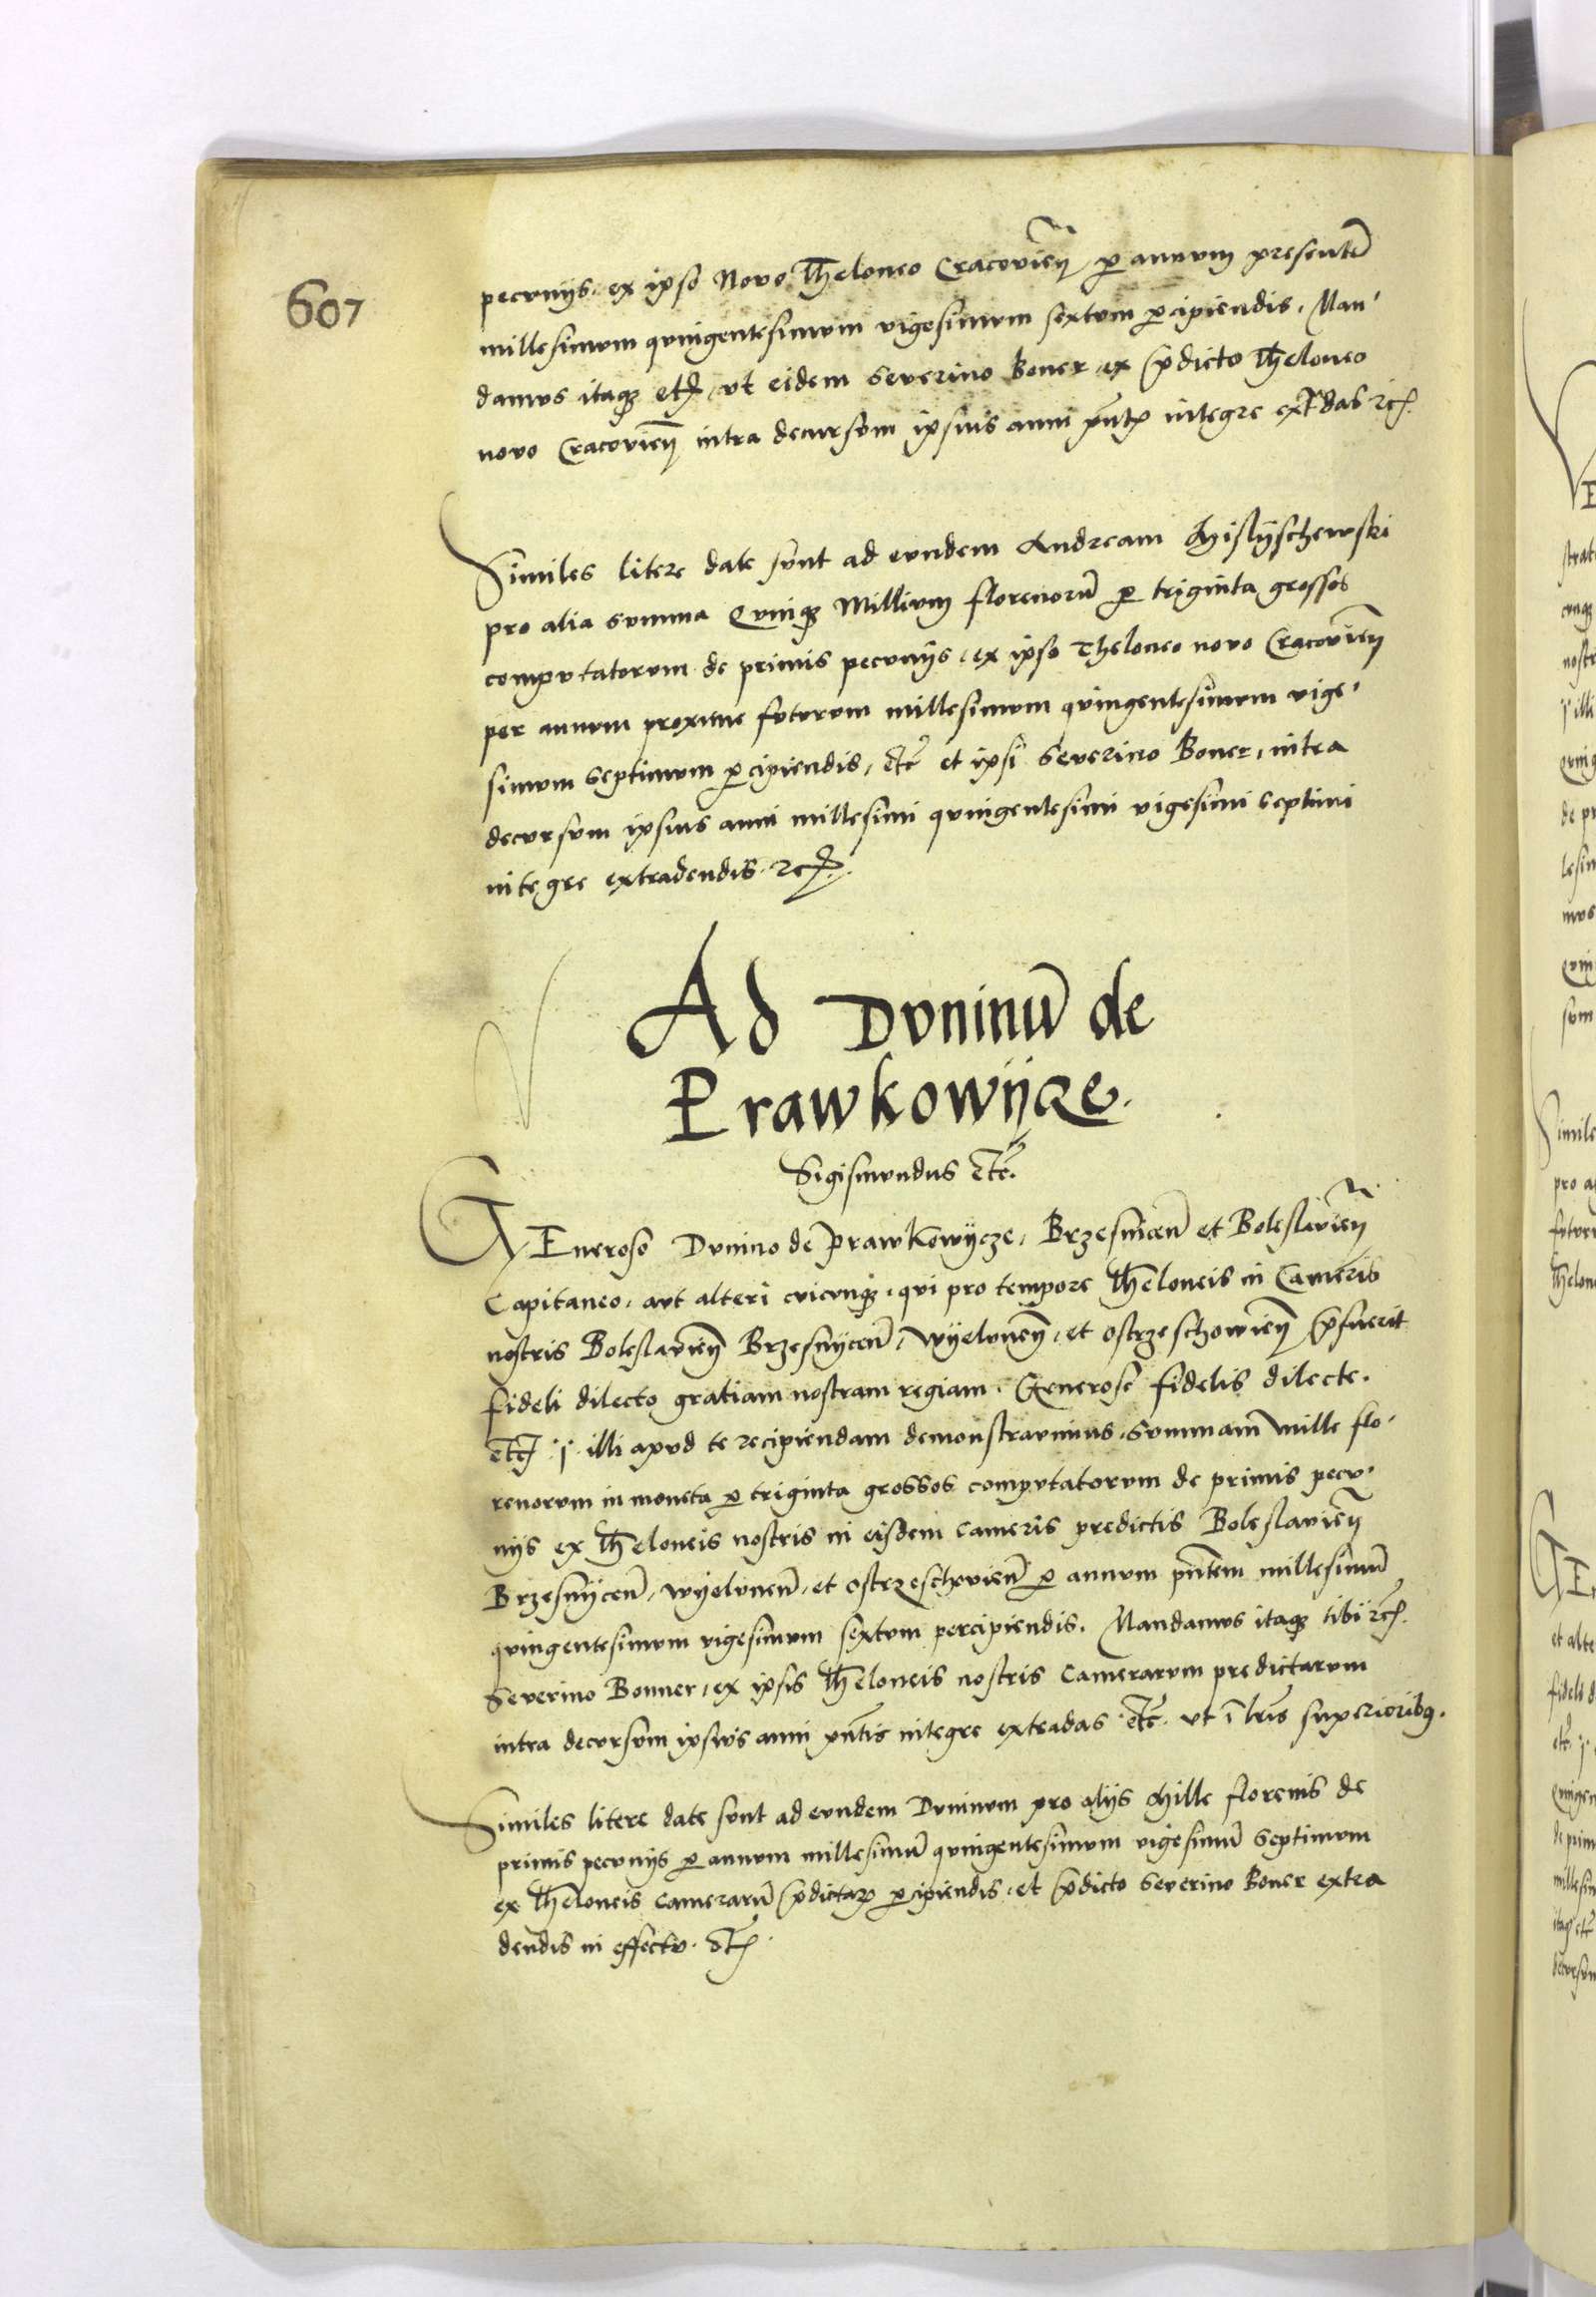 607
pecuniis ex ipso Novo Theloneo Cracovien̄ per annum presentē
millesimum quingentesimum vigesimum sextum percipiendis. Man'
damus itaqꝫ etc̄ ut eidem Severino Boner ex p̄dicto Theloneo
novo Cracovien̄ intra decursum ipsius anni pn̄tꝭ integre ext̄das etc̄.
Similes litere date sunt ad eundem Andream
pro alia summa Quinqꝫ Millium florenorū per triginta grossos
computatorum de primis pecuniis ex ipso Theloneo novo Cracovien̄
per annum proxime futurum millesimum quingentesimum vige'
simum septimum percipiendis, etc̄ et ipsi Severino Boner, intra
decursum ipsius anni millesimi quingentesimi vigesimi septimi
integre extradendis etc̄.
Ad Duninū de
Prawkowijcze.
Sigismundus etc̄.
GEneroso Dunino de Prawkowijcze, Brzesnicen̄ et Boleslavien̄
Capitaneo, aut alteri cuicunqꝫ, qui pro tempore Theloneis in Cameris
nostris Boleslavien̄ Brzesnijcen̄, Wijelunen̄, et Ostrzeschowien̄ p̄fuerit
fideli dilecto gratiam nostram regiam. Generose fidelis dilecte.
etc̄ illi apud te recipiendam demonstravimus, summam mille flo'
renorum in moneta per triginta grossos computatorum de primis pecu'
niis ex Theloneis nostris in eisdem cameris predictis Boleslavien̄
Brzesnijcen̄, Wijelunen̄, et Ostrzeschovien̄ per annum pn̄tem millesimū
quingentesimum vigesimum sextum percipiendis. Mandamus itaqꝫ tibi etc̄.
Severino Bonner, ex ipsis Theloneis nostris Camerarum predictarum
intra decursum ipsius anni pn̄tis integre extradas etc̄. ut ī lr̄is superioribꝯ.
Similes litere date sunt ad eundem Duninum pro alijs Mille florenis de
primis pecuniis per annum millesimū quingentesimum vigesimū septimum
ex Theloneis camerarū p̄dictaꝝ percipiendis, et p̄dicto Severino Boner extra
dendis in effectu. etc̄.